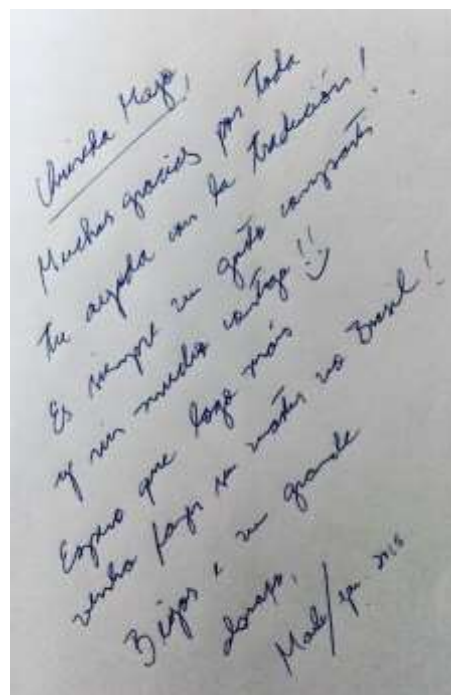 Querida Majo,
Muchas gracias por toda
tu ayuda con la tradución!
Es siempre un gusto compartir
y rir mucho contigo!!
Espero que logo más
venha fazer un mater no Brasil!
Bejos e un grande
abraço,
2015